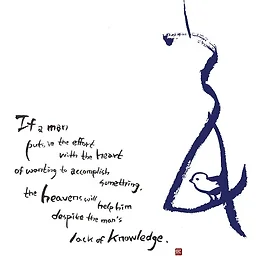 If a man
puts in the effort
with the heart
of wanting to accomplish
something,
the heavens will help him
despite the man's
lack of knowledge.